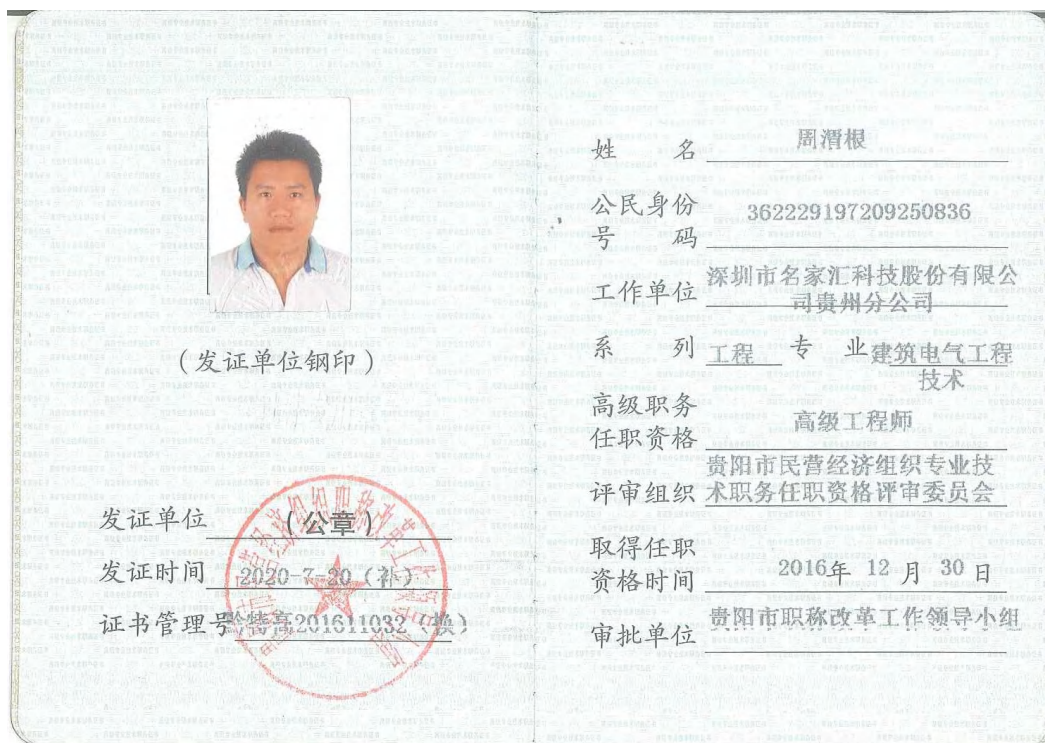 (发证单位钢印)
发证单位 (公章)
发证时间 2020-7-20(补)
证书管理号黔特高201611032(换)
姓 名 周渭根
公民身份
号 码 362229197209250836
工作单位 深圳市名家汇科技股份有限公
司贵州分公司
系 列 工程 专 业 建筑电气工程
技术
高级职务
任职资格 高级工程师
评审组织 贵阳市民营经济组织专业技
术职务任职资格评审委员会
取得任职
资格时间 2016年 12 月 30 日
审批单位 贵阳市职称改革工作领导小组